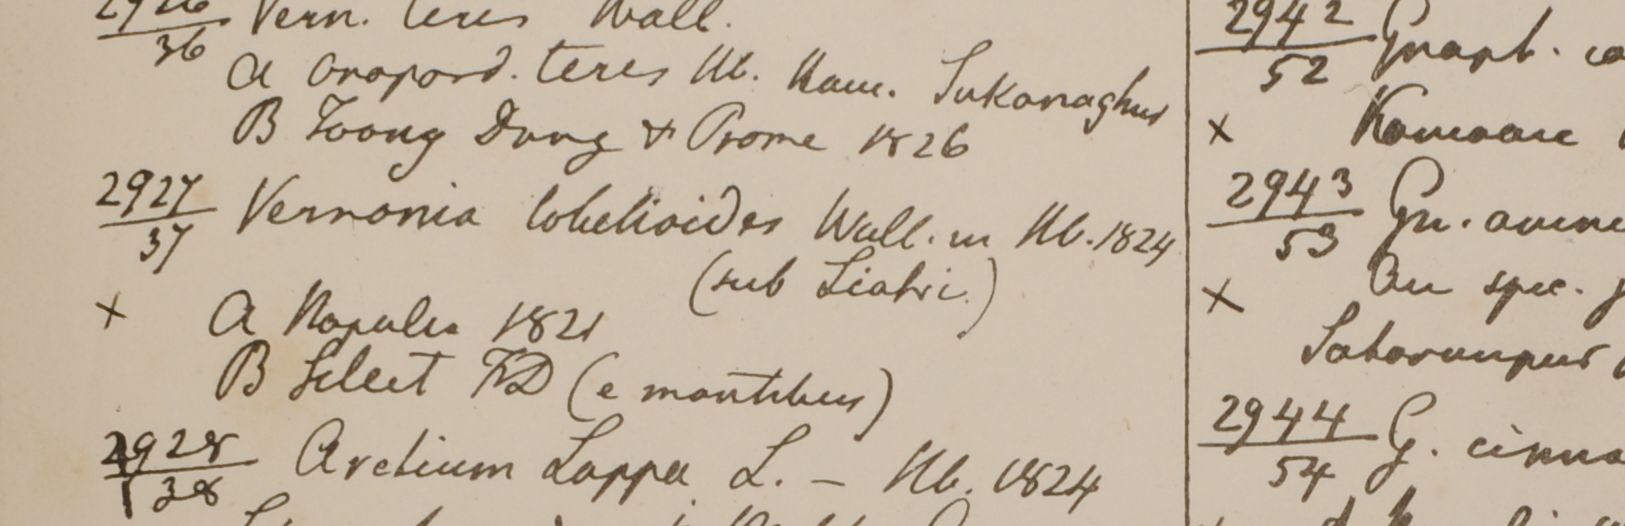 2926 Vern. teres Wall.
36
A Onopord. teres Hb. Ham. Sukanaghur
B Toong Dong & Prome 1826
2927 Vernonia lobelioides Wall. in Hb. 1824
37
(sub Liatri.)
× A Napalia 1821
B Sillet FD (e montibus)
2928 Arctium Lappa L. – Hb. 1824
38
2942 Gnaph.
52
× Kamaon
2943 Gn.
53
× An spec.
Saharunpur
2944 G.
54